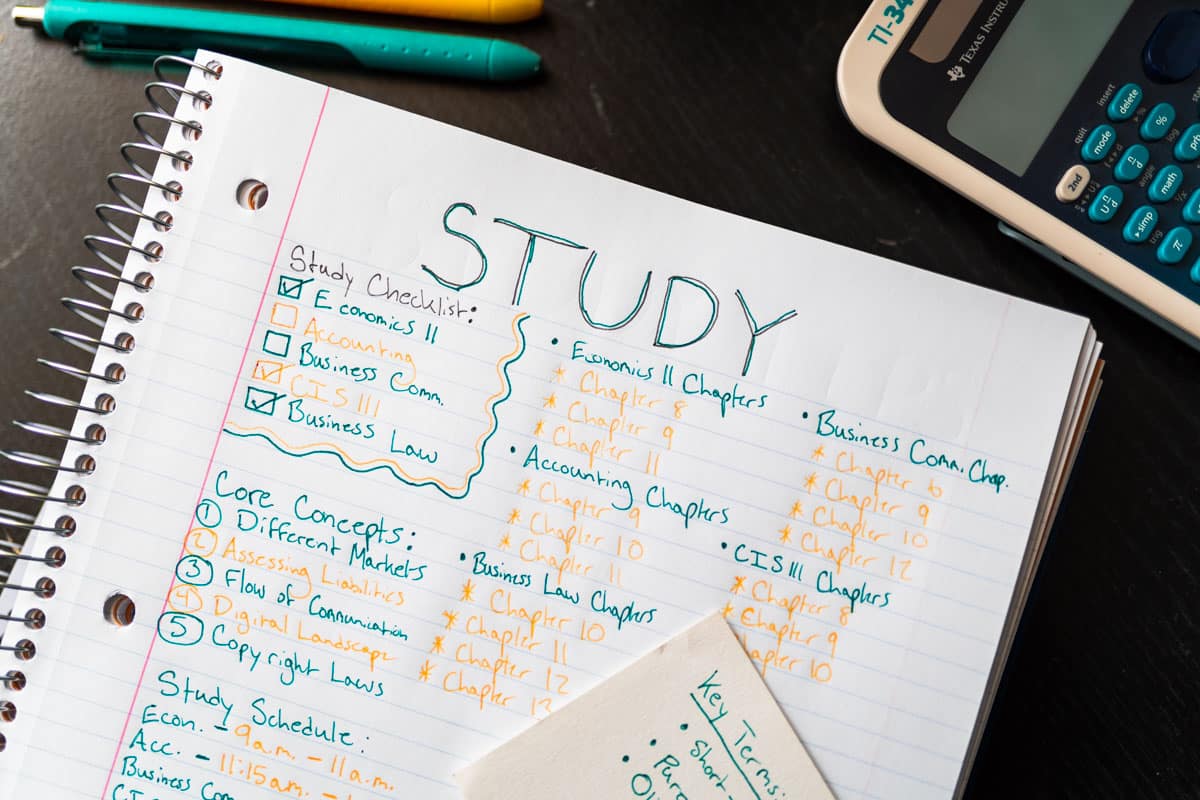 STUDY
Study Checklist:
Economics II
Accounting
Business Comm.
CIS III
Business Law
Core Concepts:
1 Different Markets
2 Assessing Liabilities
3 Flow of Communication
4 Digital Landscape
5 Copyright Laws
Study Schedule:
Econ. - 9a.m. - 11a.m.
Acc. - 11:15am. -
Business Com
• Economics II Chapters
* Chapter 8
* Chapter 9
* Chapter 11
• Accounting Chapters
* Chapter 9
* Chapter 10
* Chapter 11
• Business Law Chapters
* Chapter 10
* Chapter 11
* Chapter 12
* Chapter 13
• Business Comm. Chap.
* Chapter 6
* Chapter 9
* Chapter 10
* Chapter 12
• CIS III Chapters
* Chapter 8
* Chapter 9
Chapter 10
Key Terms:
• Short-
TI-34
TEXAS INSTRU
insert
delete
quit
mode
%
log
2nd
n/d
angle
math
U n/d
simp
trig
1/x
π